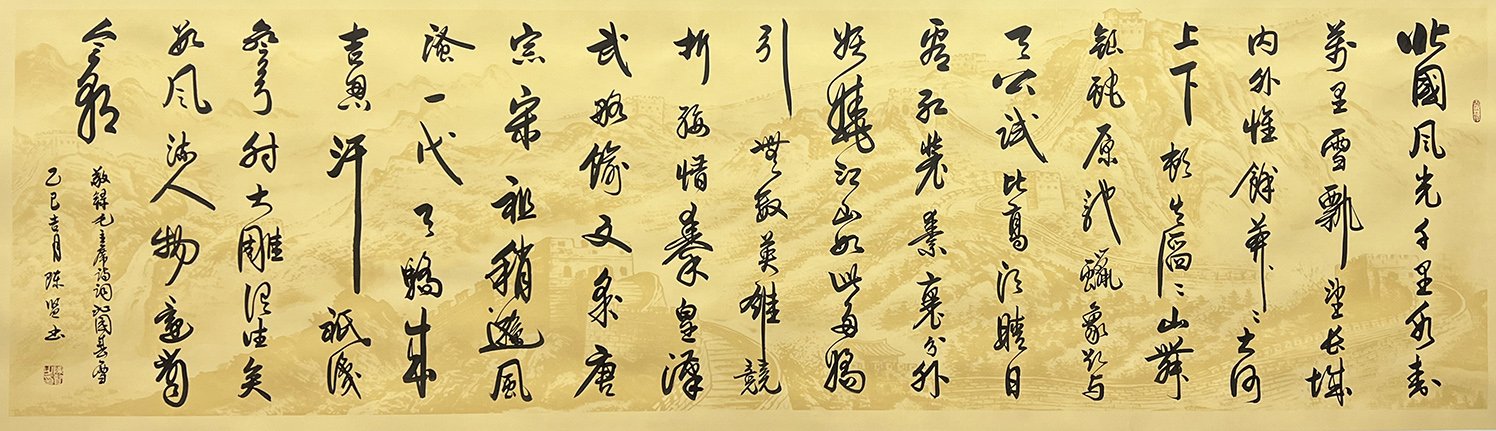 北國風光千里冰封
萬里雪飄望長城
內外惟餘莽々大河
上下頓失滔々山舞
銀蛇原馳蠟象欲与
天公試比高須晴日
看紅裝素裹分外
妖嬈江山如此多嬌
引無數英雄競
折腰惜秦皇漢
武略輸文采唐
宗宋祖稍遜風
騷一代天驕成
吉思汗祇識
彎弓射大雕俱往矣
數風流人物還看
今朝
敬錄毛主席詩詞沁園春雪
乙巳吉月陈贤书